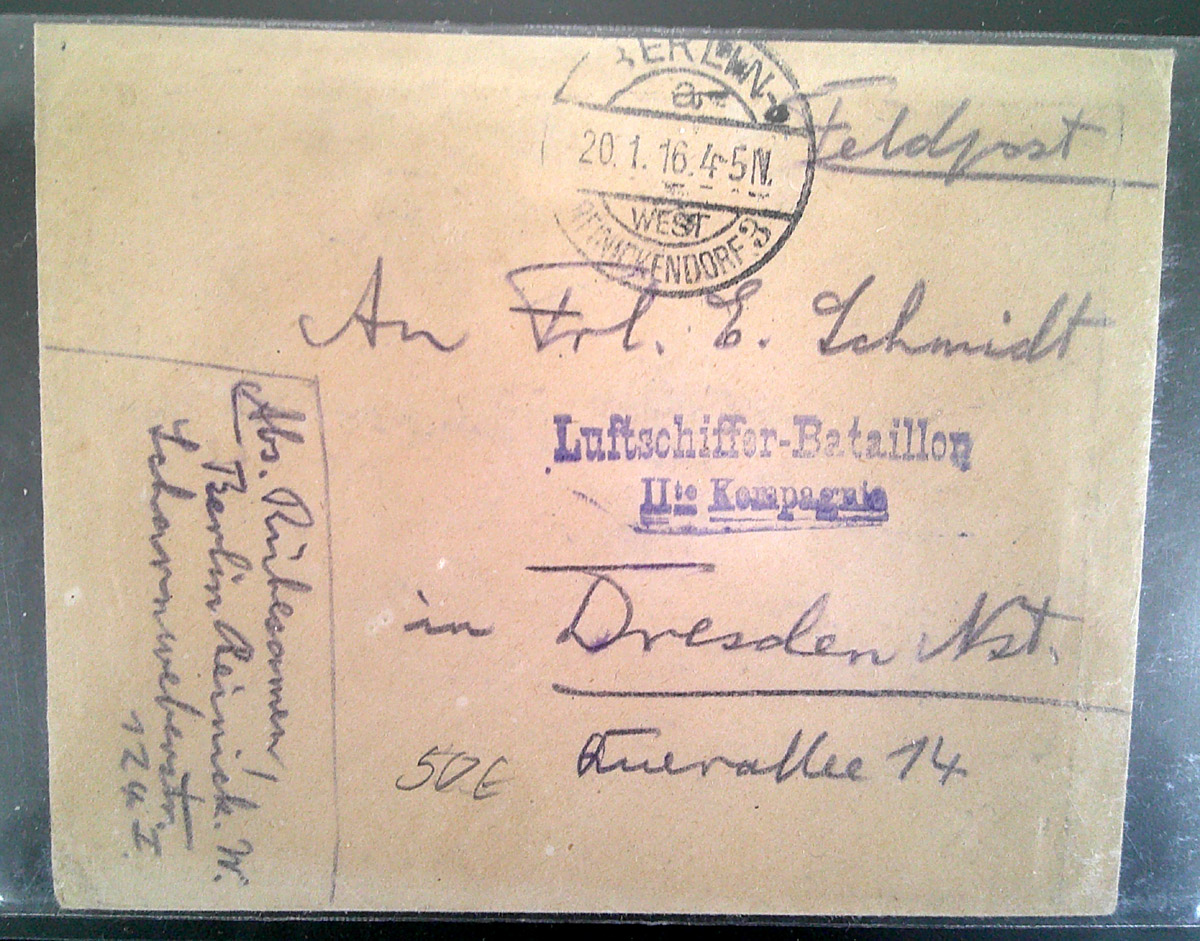 BERLIN-
a
20.1.16.4-5N.
WEST
REINICKENDORF 3
Feldpost
An Frl. E. Schmidt
Luftschiffer-Bataillon
IIte Kompagnie
in Dresden Nst.
Querallee 14
50€
Abs. Rübesamen,
Berlin Reinick. W.
Scharnweberstr.
124 I.